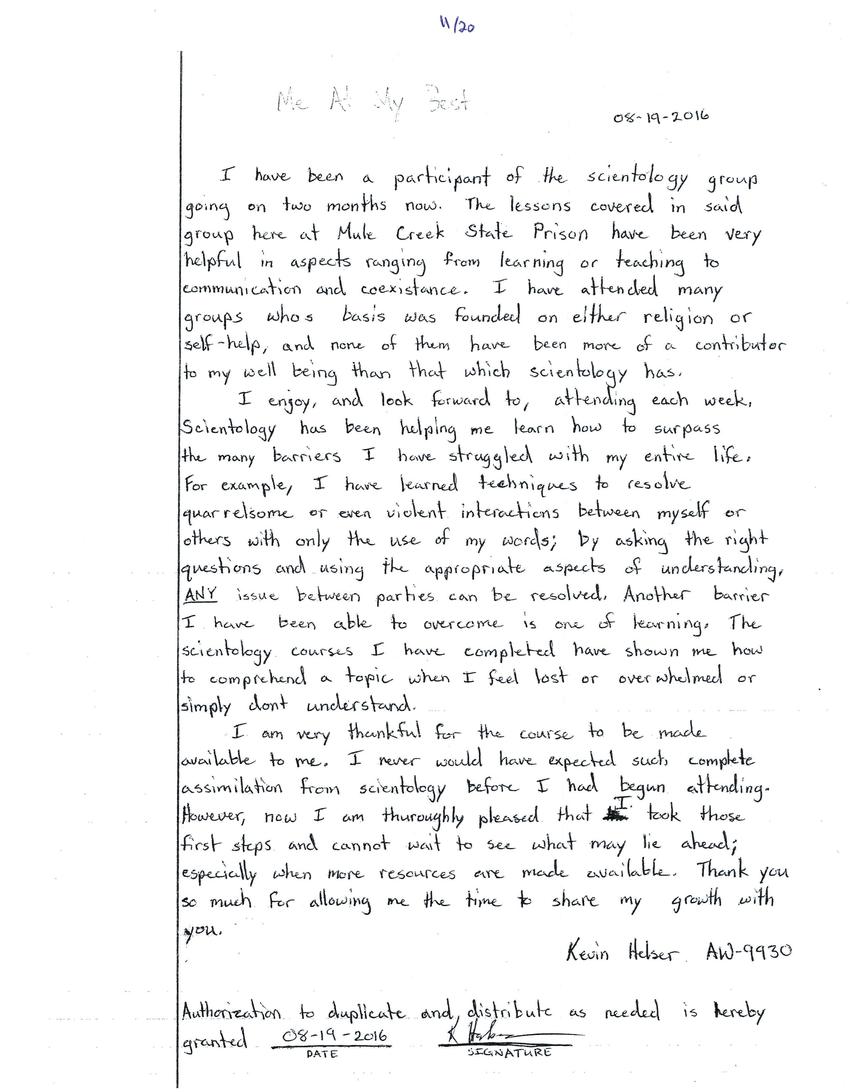 11/20
Me At My Best
08-19-2016
I have been a participant of the scientology group
going on two months now. The lessons covered in said
group here at Mule Creek State Prison have been very
helpful in aspects ranging from learning or teaching to
communication and coexistance. I have attended many
groups whos basis was founded on either religion or
self-help, and none of them have been more of a contributor
to my well being than that which scientology has.
I enjoy, and look forward to, attending each week.
Scientology has been helping me learn how to surpass
the many barriers I have struggled with my entire life.
For example, I have learned techniques to resolve
quarrelsome or even violent interactions between myself or
others with only the use of my words; by asking the right
questions and using the appropriate aspects of understanding,
ANY issue between parties can be resolved. Another barrier
I have been able to overcome is one of learning. The
scientology courses I have completed have shown me how
to comprehend a topic when I feel lost or overwhelmed or
simply dont understand.
I am very thankful for the course to be made
available to me. I never would have expected such complete
assimilation from scientology before I had begun attending.
However, now I am thuroughly pleased that I took those
first steps and cannot wait to see what may lie ahead;
especially when more resources are made available. Thank you
so much for allowing me the time to share my growth with
you.
Kevin Helser AW-9930
Authorization to duplicate and distribute as needed is hereby
granted 08-19-2016 K Helser
DATE SIGNATURE